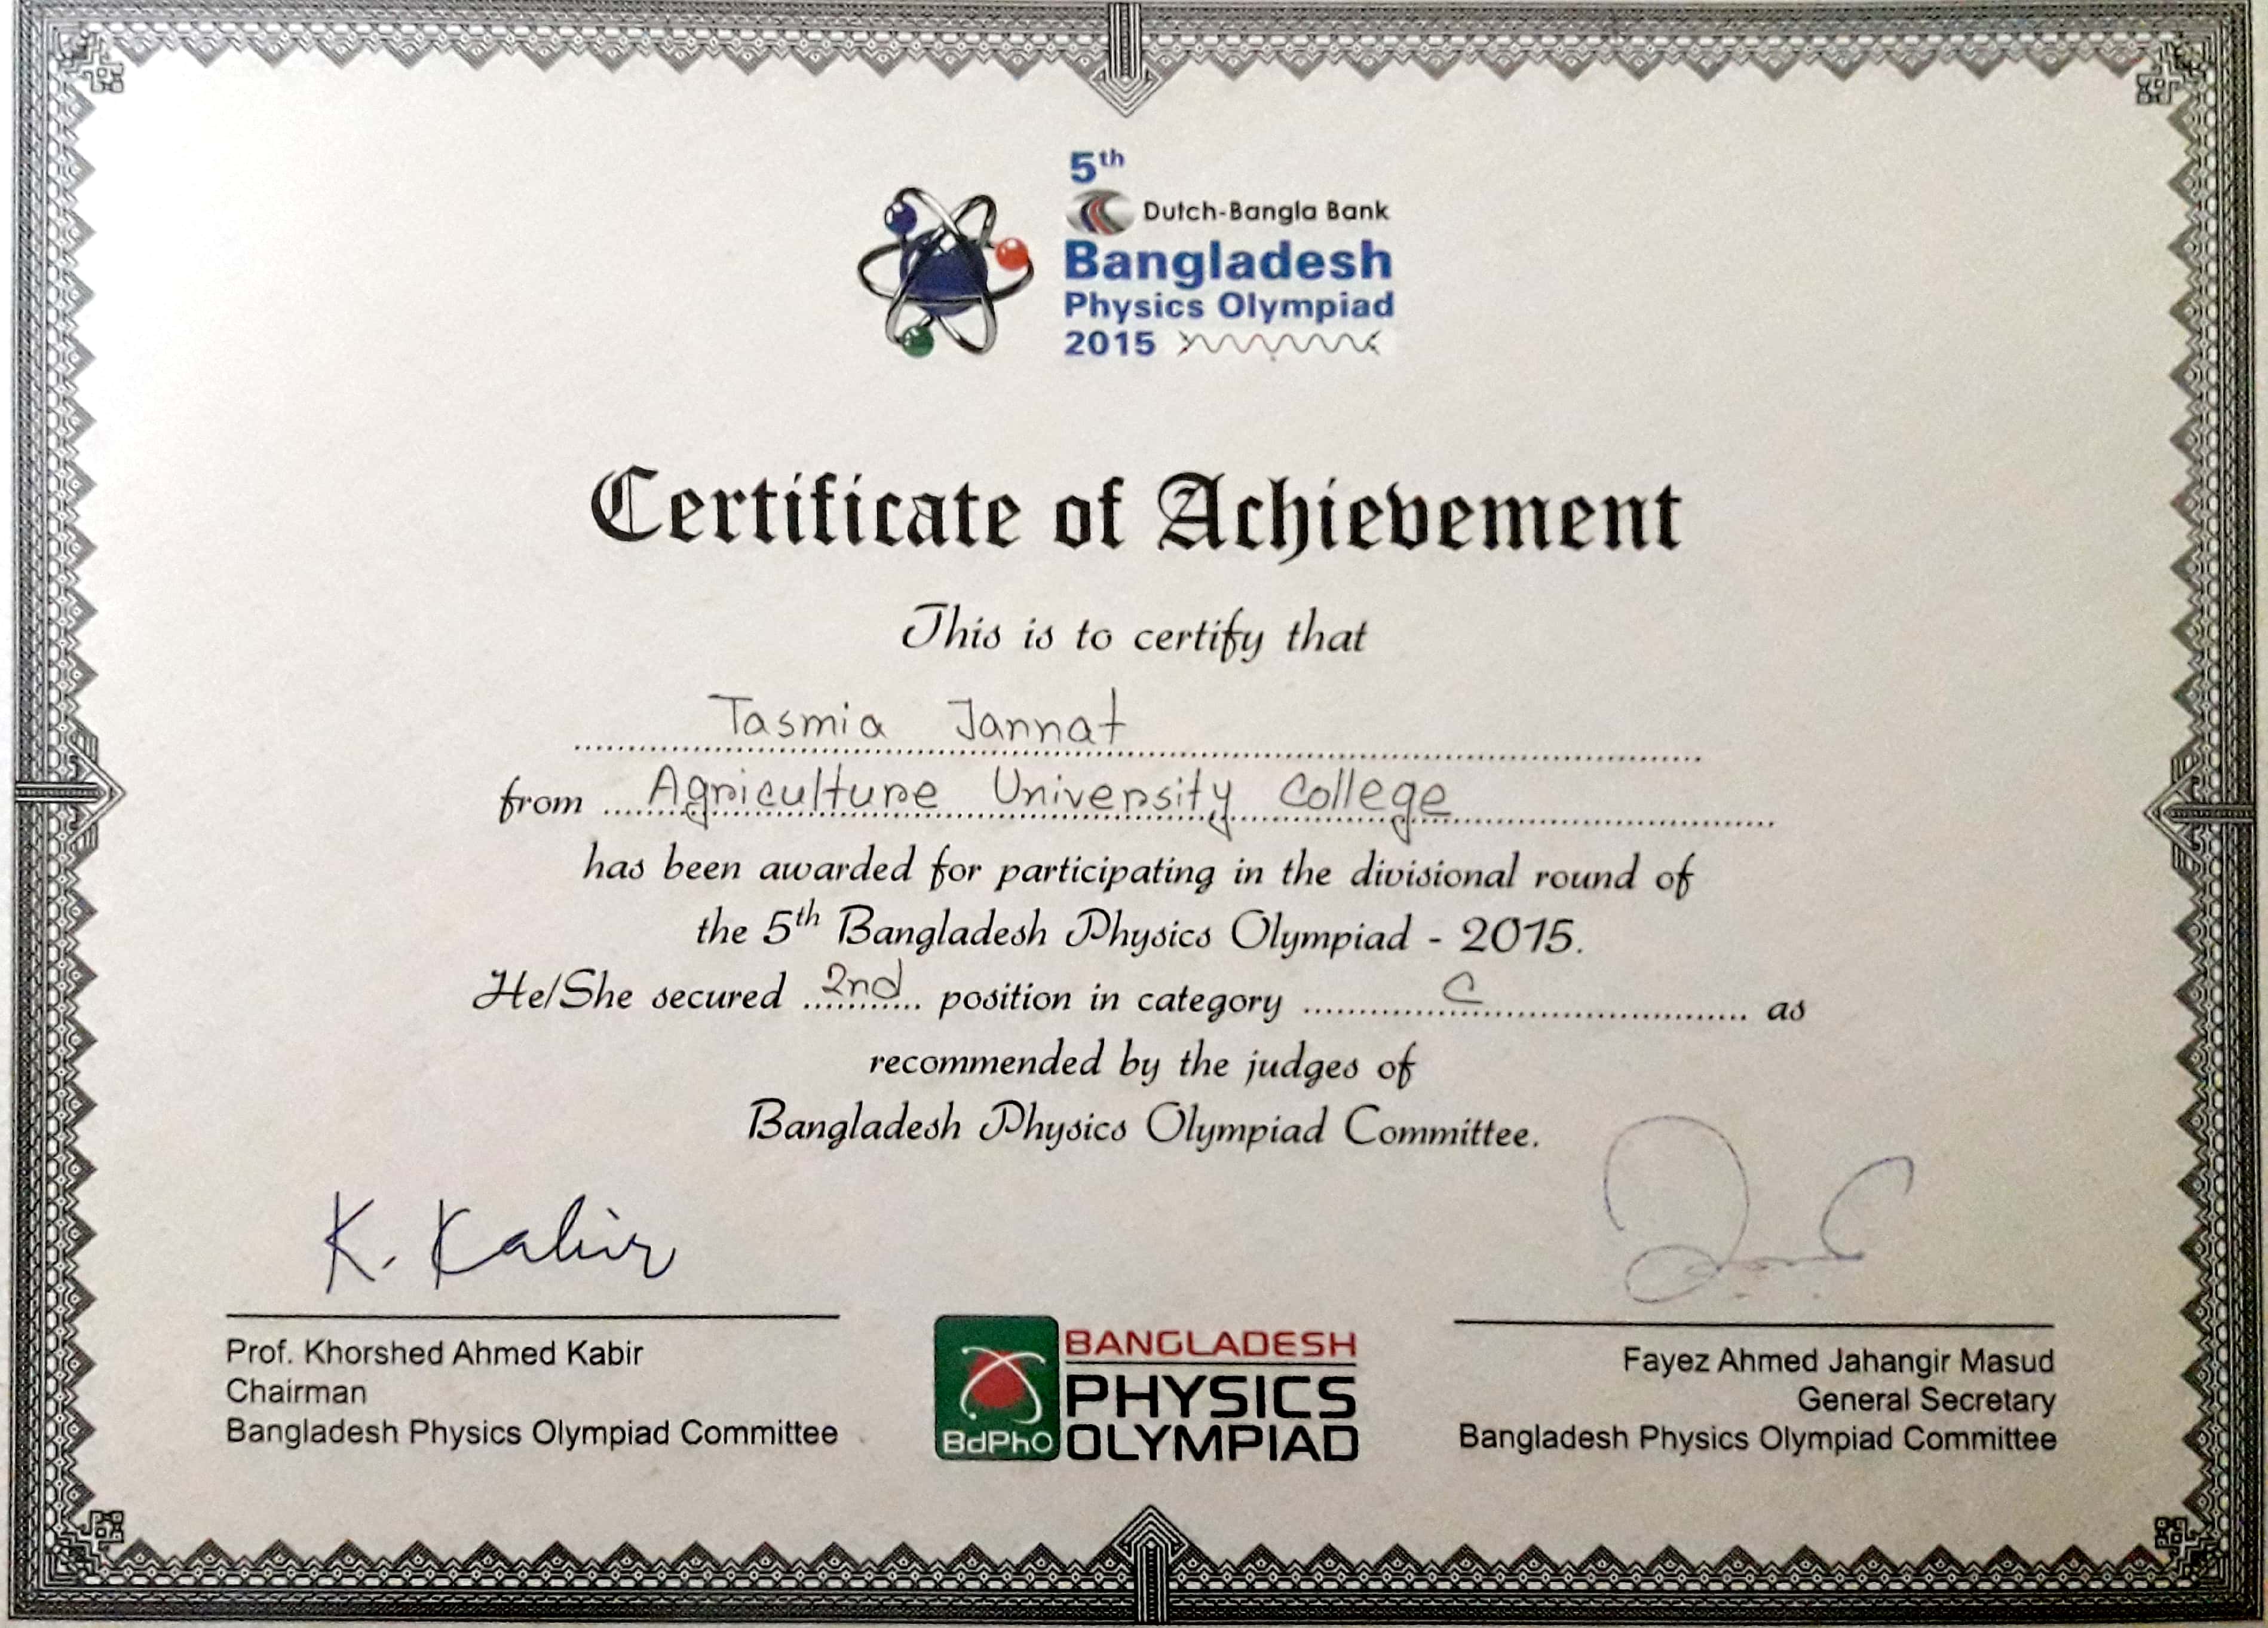 5th
Dutch-Bangla Bank
Bangladesh
Physics Olympiad
2015
Certificate of Achievement
This is to certify that
Tasmia Jannat
from Agriculture University College
has been awarded for participating in the divisional round of
the 5th Bangladesh Physics Olympiad - 2015.
He/She secured 2nd position in category C as
recommended by the judges of
Bangladesh Physics Olympiad Committee.
K. Kabir
Prof. Khorshed Ahmed Kabir
Chairman
Bangladesh Physics Olympiad Committee
BdPhO
BANGLADESH
PHYSICS
OLYMPIAD
Fayez Ahmed Jahangir Masud
General Secretary
Bangladesh Physics Olympiad Committee